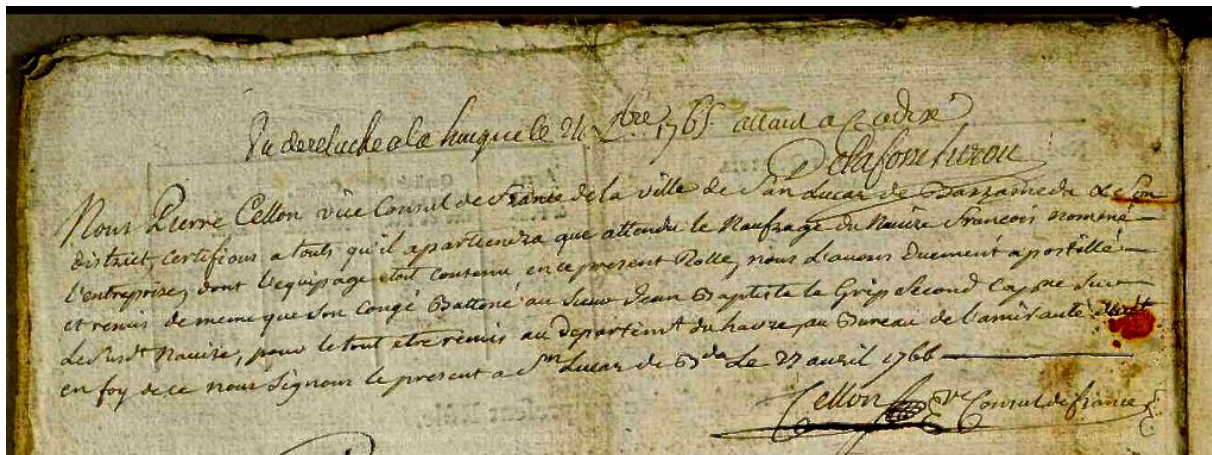 Vu de relache a la hougue le 24 bre 1765 allant a Cadix
Delafosse
Nous Pierre Cellon vice Consul de France de la ville de San Lucar de Barrameda & Son
district, Certifions a touts qu'il apartiendra que attendu le Naufrage du Navire François nommé
L'entreprise, dont l'equipage etoit contenu en ce present Rolle, nous L'avons Duement apostillé
et remis de meme que son Congé au Sieur Jean Baptiste le Grip Second Capne Sur
Le Susdt Navire, pour le tout etre remis au departemt du havre, au Bureau de l'amirauté
en foy de ce nous Signons le present a Sn Lucar de Bda Le 27 avril 1766
Cellon Ve Consul de france